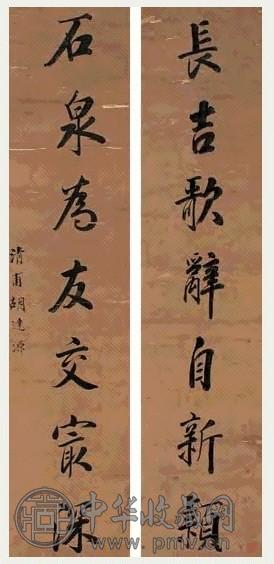 長吉歌辭自新穎
石泉為友交㝡深
清甫胡達源
中华收藏网